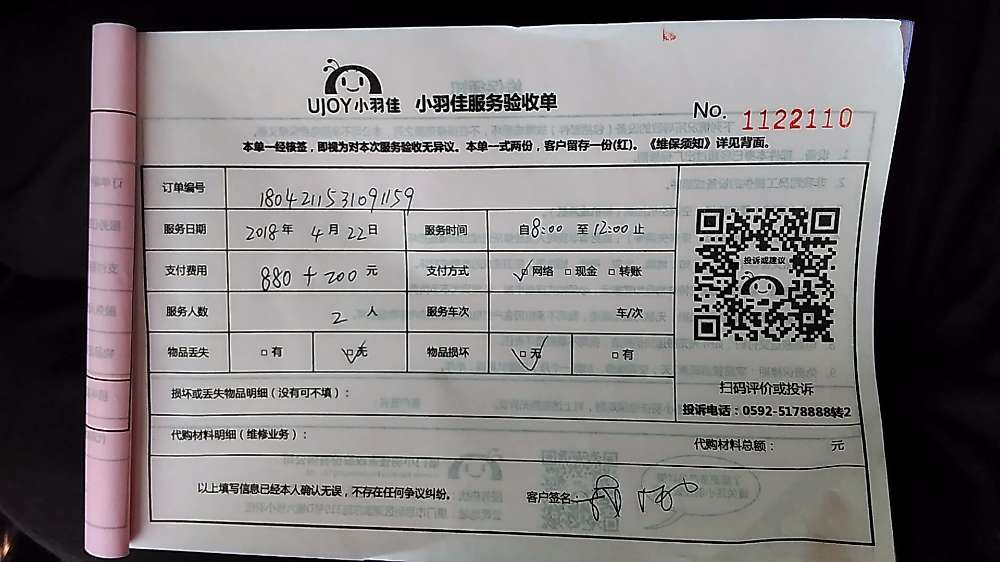 UJOY小羽佳 小羽佳服务验收单
No. 1122110
本单一经核签，即视为对本次服务验收无异议。本单一式两份，客户留存一份(红)。《维保须知》详见背面。
订单编号 1804211531091159
服务日期 2018年 4月22日 服务时间 自8:00 至12:00止
支付费用 880+200 元 支付方式 ☑网络 □现金 □转账
服务人数 2 人 服务车次 车/次
物品丢失 □有 ☑无 物品损坏 ☑无 □有
投诉或建议
扫码评价或投诉
投诉电话：0592-5178888转2
损坏或丢失物品明细（没有可不填）：
代购材料明细（维修业务）： 代购材料总额： 元
以上填写信息已经本人确认无误，不存在任何争议纠纷。 客户签名：